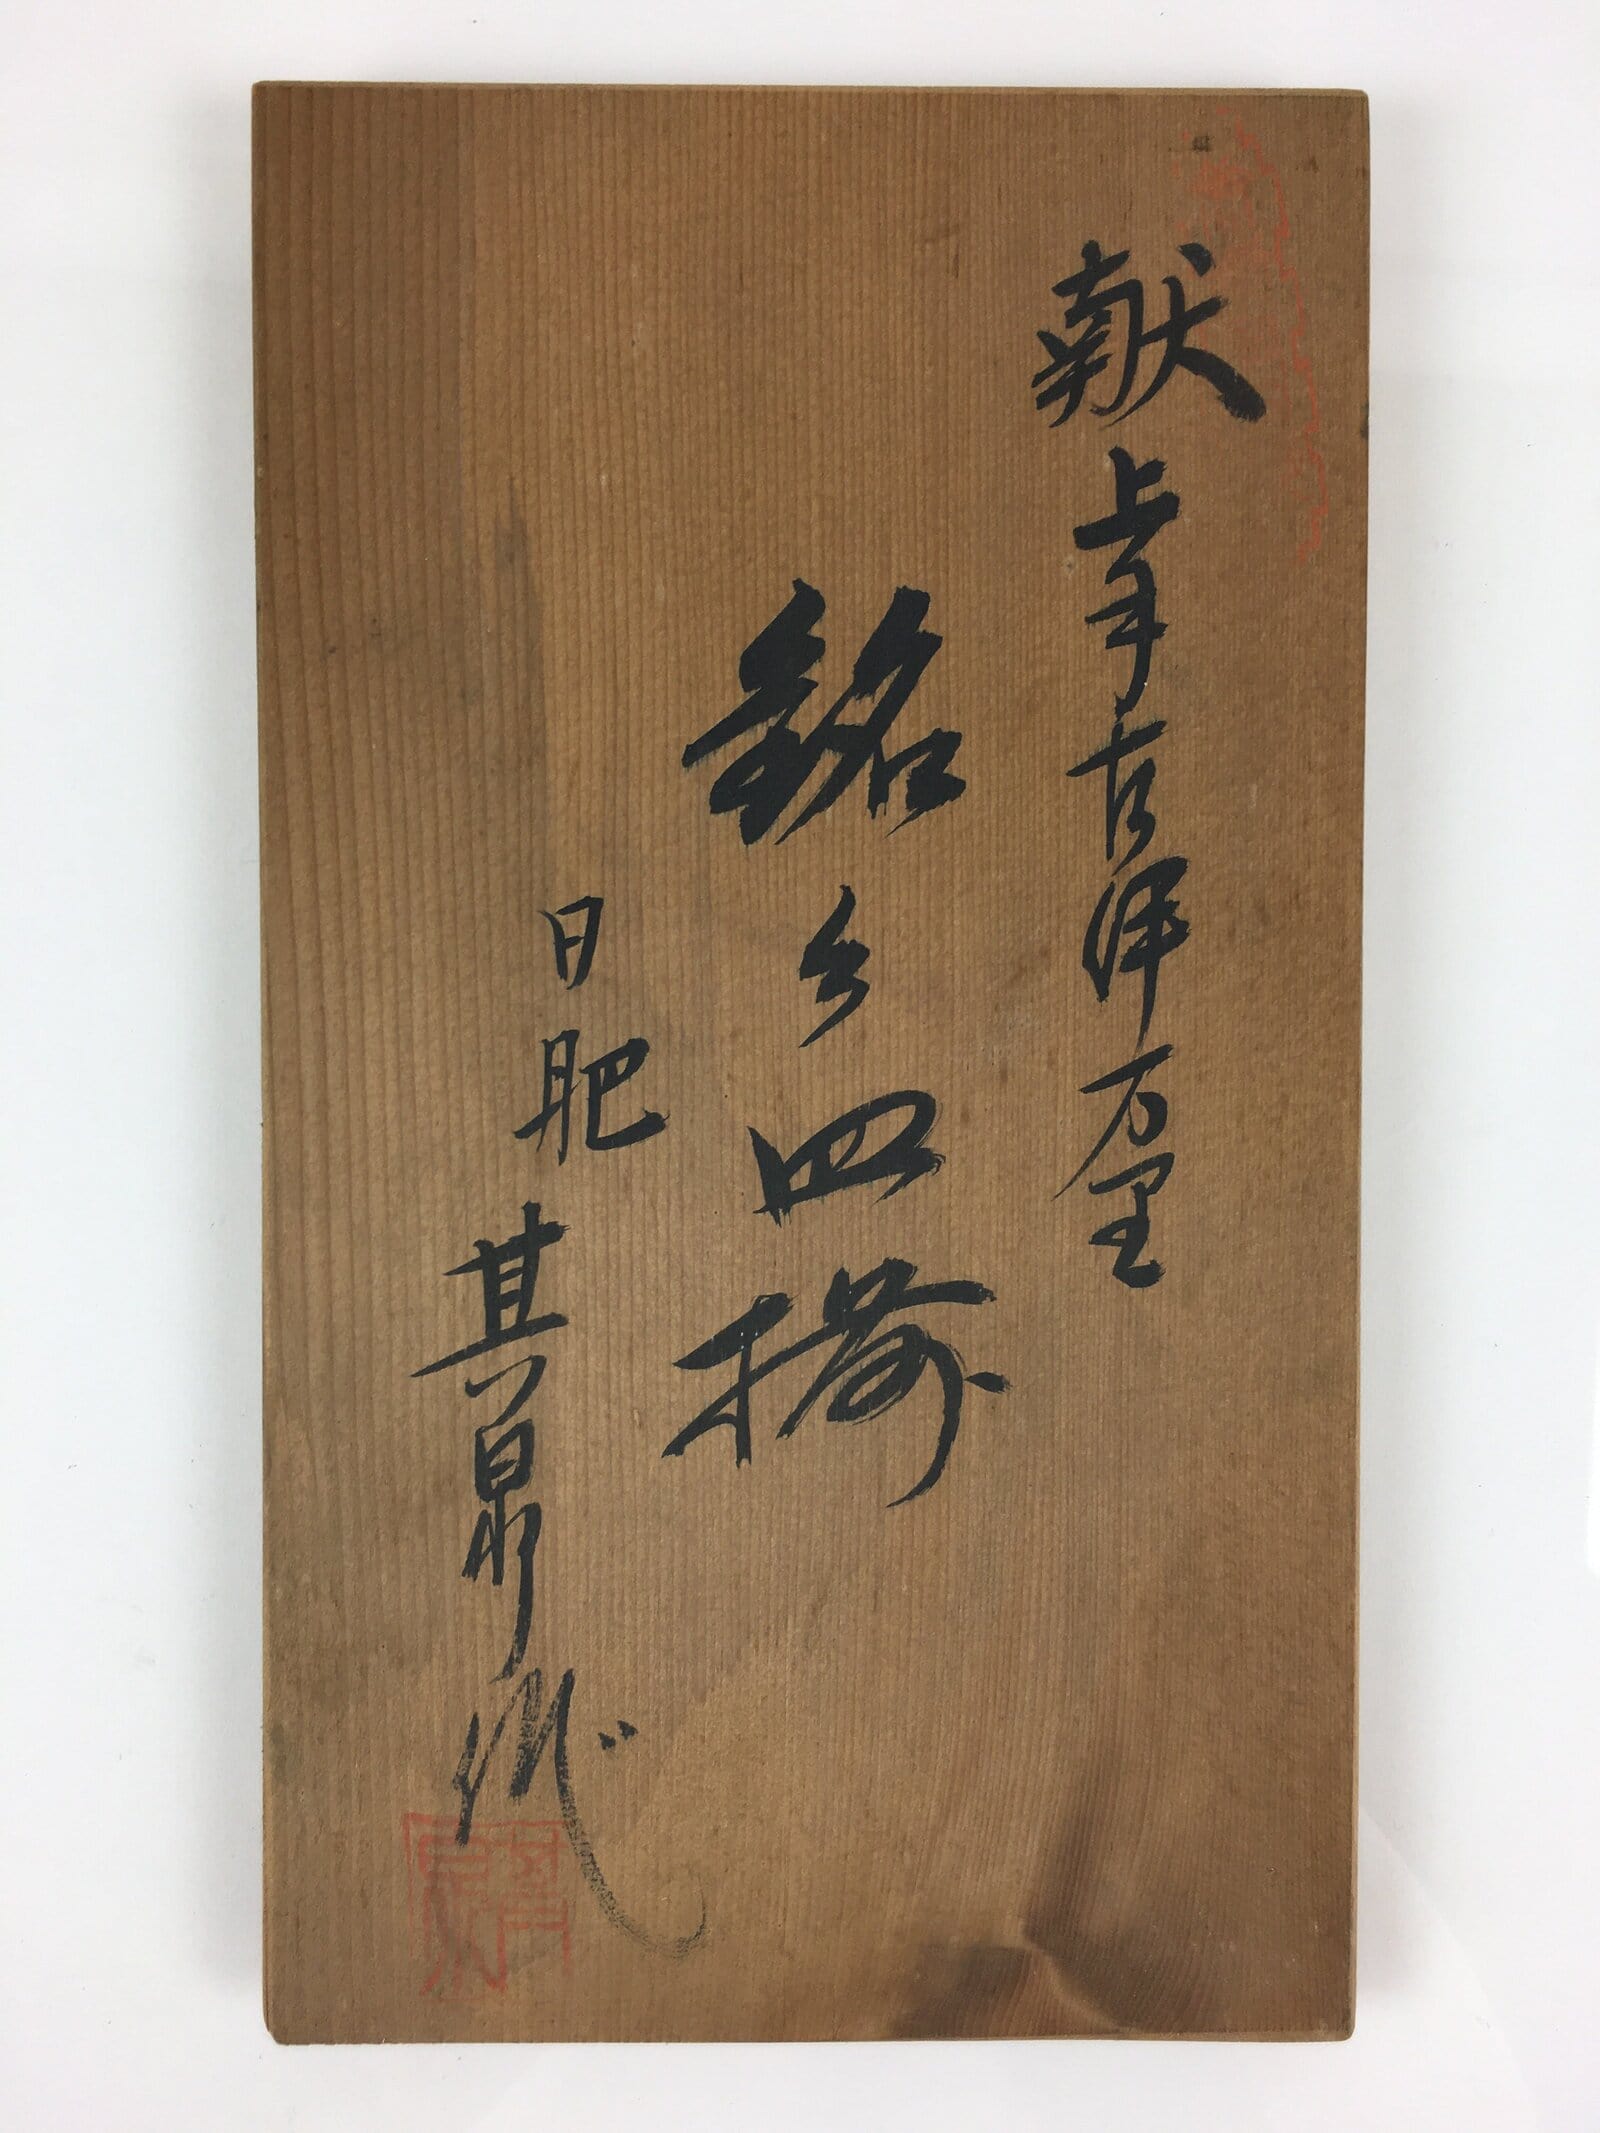 献上手古伊万里
銘々皿揃
日肥 其泉作